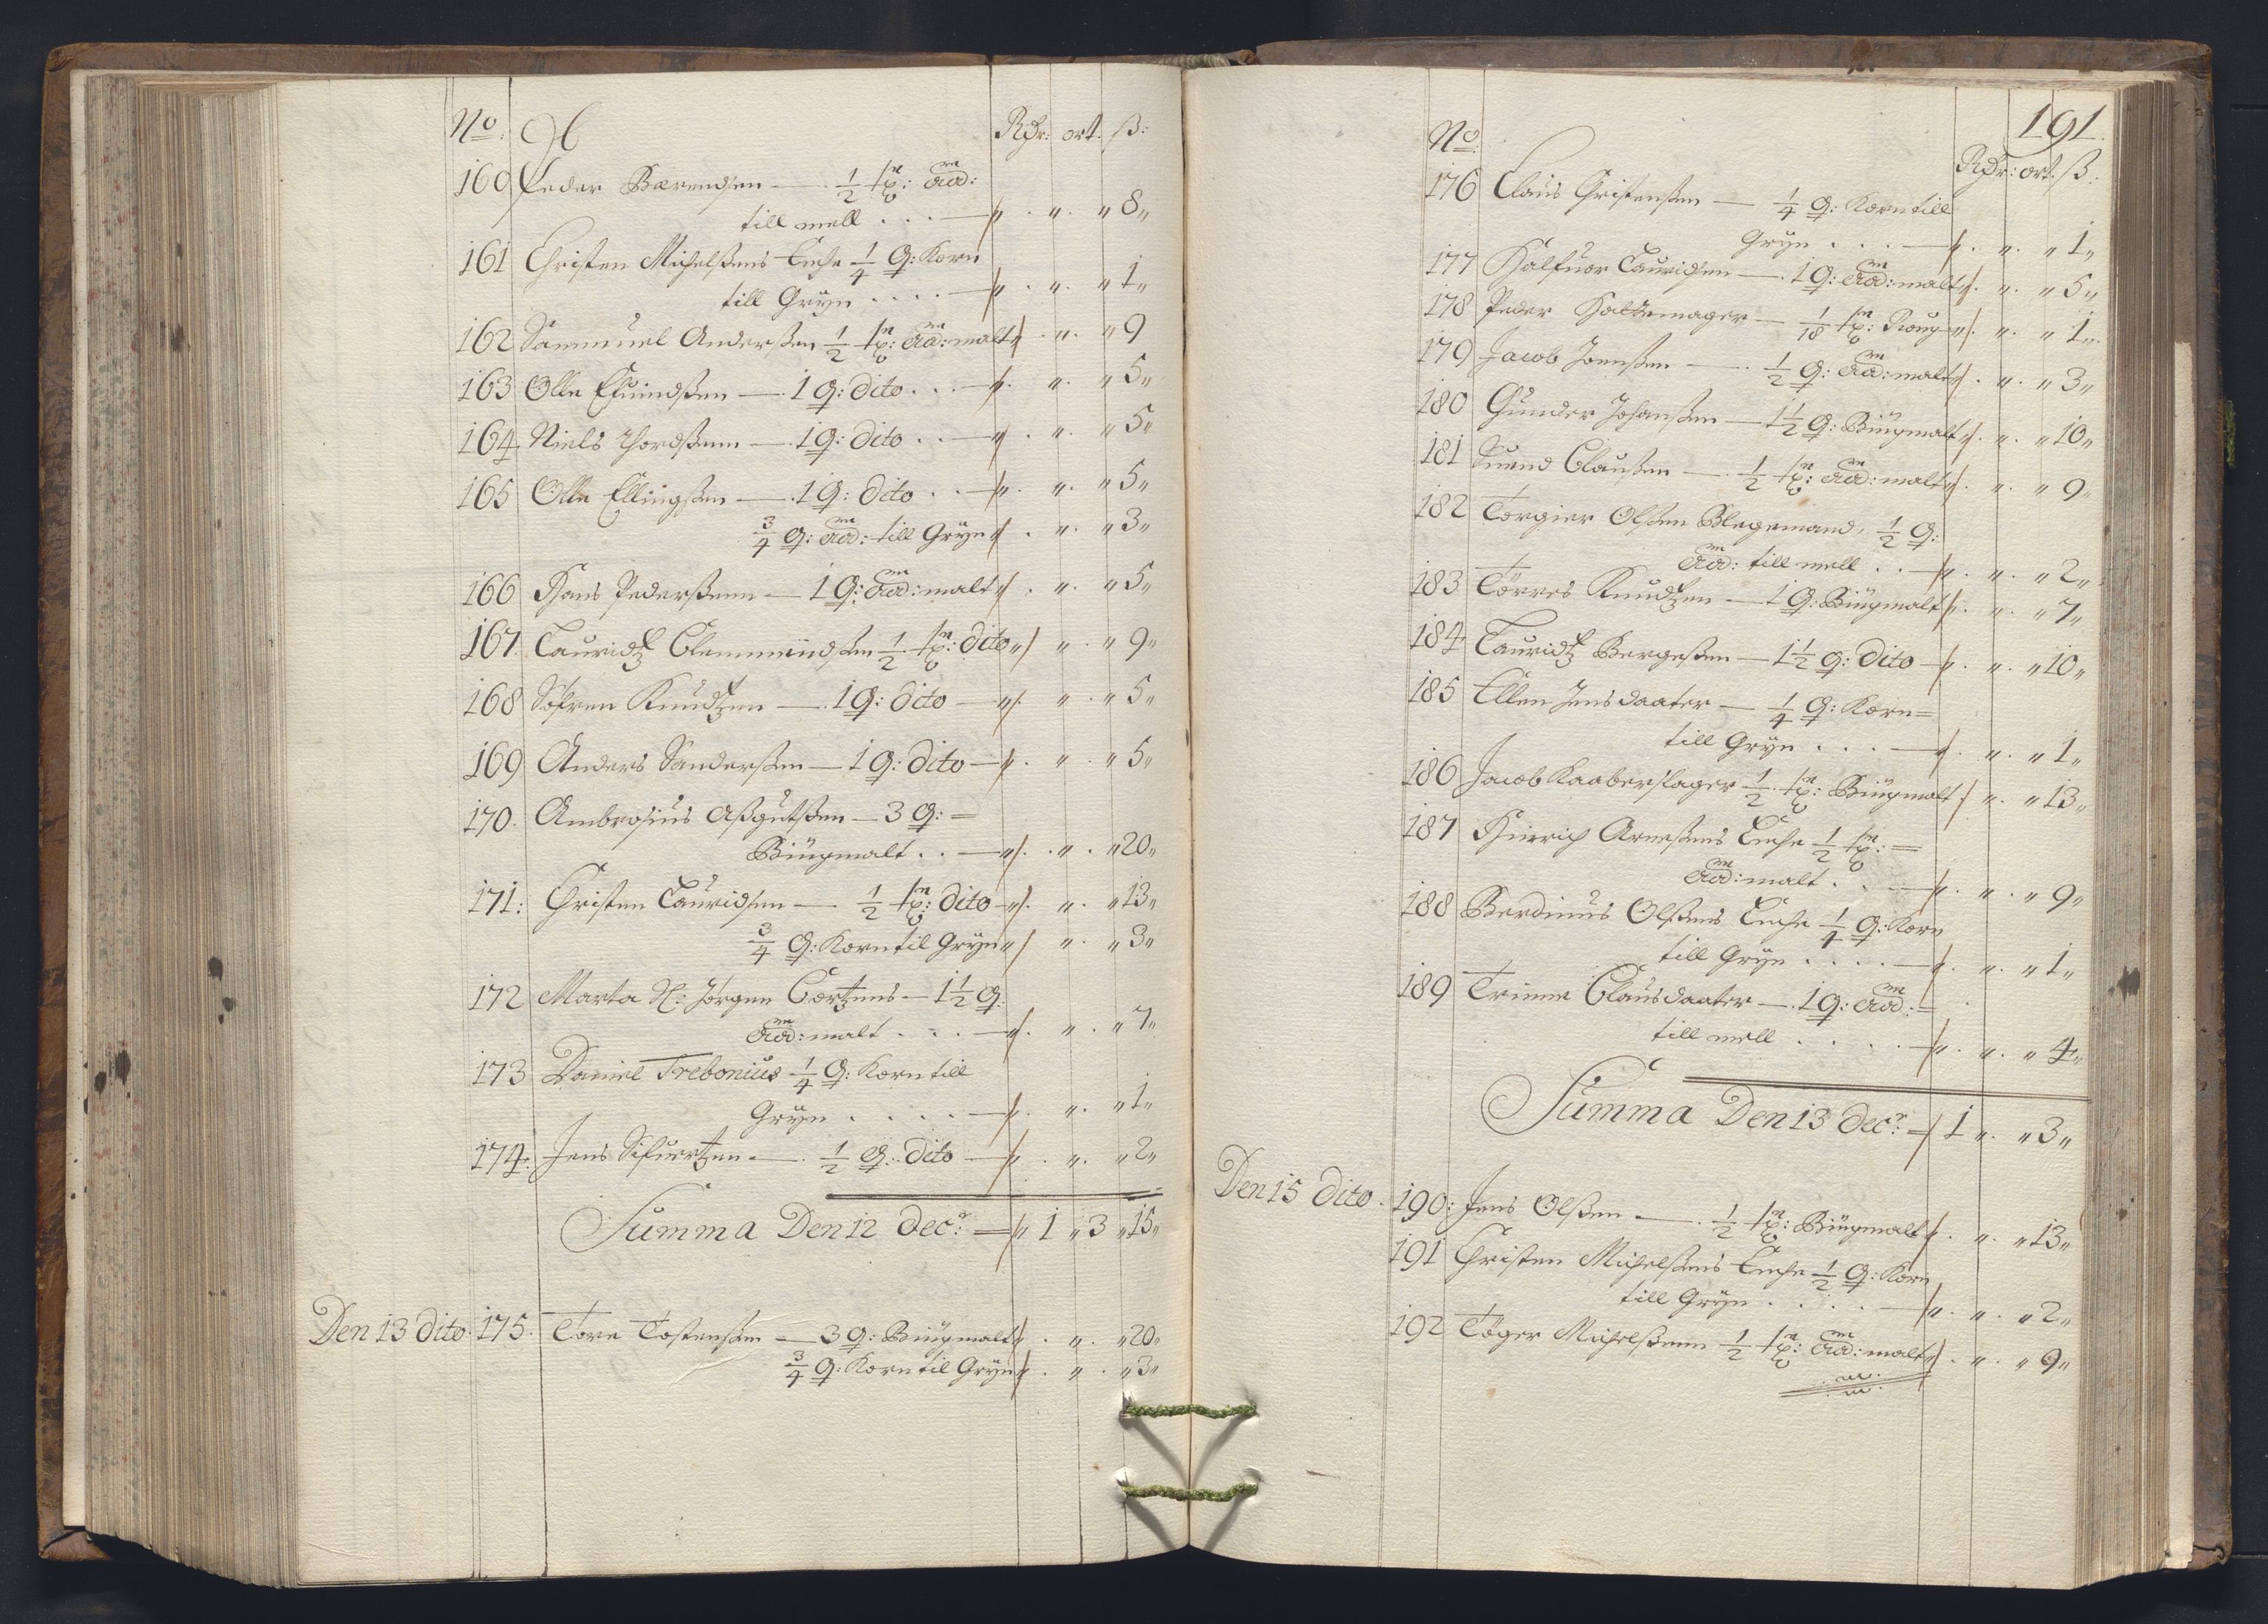 No: Rdr: ort. ß:
160 Peder Bærendsen — 1/2 tn: aad:
till mell . . . — " . " . " 8 "
161 Christen Michelsens Enche 1/4 Q: Korn
till Gryn . . . . — " . " . " 1 "
162 Sammuel Andersen 1/2 tn: aad: malt " . " . " 9
163 Olle Efuindsen — 1 Q: dito . . . — " . " . " 5 "
164 Niels Thordsenn — 1 Q: dito . . — " . " . " 5 "
165 Olle Ellingsen — 1 Q: dito . . — " . " . " 5 "
3/4 Q: aad: till Gryn " . " . " 3 "
166 Hans Pedersenn — 1 Q: aad: malt " . " . " 5 "
167. Lauridtz Clemmindsen 1/2 tn: dito " " . " 9 "
168 Søfren Knudtzen — 1 Q: dito — " . " . " 5 "
169 Anders Sandersen — 1 Q: dito — " . " . " 5 "
170. Ambrosius Assgutsen — 3 Q: =
Biugmalt . . — " . " . " 20 "
171: Christen Lauridsen — 1/2 tn: dito — " . " . " 13 "
3/4 Q: Korn til Gryn " " . " 3 "
172 Marta Sl: Jørgen Cortzens — 1 1/2 Q:
aad: malt . . . — " . " . " 7 "
173 Daniel Trebonius 1/4 Q: Korn till
Gryn . . . . . — " . " . " 1 "
174: Jens Sifuertzen — 1/2 Q: dito — " . " . " 2 "
Summa Den 12 decr: = " 1 " 3 " 15 "
Den 13 dito. 175. Tore Tostensen — 3 Q: Biugmalt " . " . " 20 "
3/4 Q: Korn til Gryn " . " . " 3 "
191.
No: Rdr: ort. ß:
176 Claus Christensen — 1/4 Q: Korn till
Gryn . . . — " . " . " 1 "
177 Halfuor Lauridsen — 1 Q: aad: malt " . " . " 5 "
178 Peder Hattemager — 1/18 tn: Roug — " . " . " 1 "
179 Jacob Joensen — 1/2 Q: aad: malt " . " . " 3 "
180 Gunder Johansen — 1 1/2 Q: Biugmalt " . " . " 10 "
181 Suend Clausen — 1/2 tn: aad: malt " . " . " 9 "
182 Torgier Olsen Blegemand, 1/2 Q:
aad: till mell . . — " . " . " 2 "
183 Tørres Knudtzen — 1 Q: Biugmalt " . " . " 7 "
184 Lauridtz Bergesen — 1 1/2 Q: dito — " . " . " 10 "
185 Ellen Jensdaater — 1/4 Q: Korn =
till Gryn . . . — " . " . " 1 "
186 Jacob Kaaberslager 1/2 tn: Biugmalt " . " 13 "
187 Hinrich Arnesens Enche 1/2 tn: =
aad: malt . . . — " . " . " 9 "
188 Berdinus Olsens Enche 1/4 Q: Korn
till Gryn . . . . — " . " . " 1 "
189 Trinne Clausdaater — 1 Q: aad: =
till mell . . . . — " . " . " 4 "
Summa Den 13 decr: = 1 " . " 3 "
Den 15 dito. 190: Jens Olsen — 1/2 tn: Biugmalt " . " . " 13 "
191 Christen Michelsens Enche 1/2 Q: Korn
till Gryn . . . . — " . " . " 2 "
192 Tøger Michelsenn 1/2 tn: aad: malt " . " . " 9 "